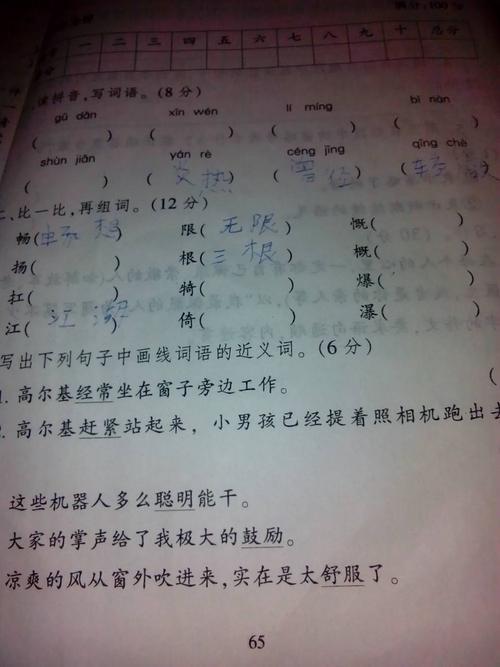 满分:100分
一 二 三 四 五 六 七 八 九 十 总分
读拼音,写词语。(8分)
gū dān xīn wén lí míng bì nàn
( ) ( ) ( ) ( )
shùn jiān yán rè céng jīng qīng chè
( ) (炎热) (曾经) (轻
二、比一比,再组词。(12分)
畅(畅想) 限(无限) 慨(
扬( ) 根(三根) 概(
扛( ) 犄( ) 爆(
江(江湖) 倚( ) 瀑(
写出下列句子中画线词语的近义词。(6分)
1. 高尔基经常坐在窗子旁边工作。 (
2. 高尔基赶紧站起来,小男孩已经提着照相机跑出去
这些机器人多么聪明能干。
大家的掌声给了我极大的鼓励。
凉爽的风从窗外吹进来,实在是太舒服了。
65